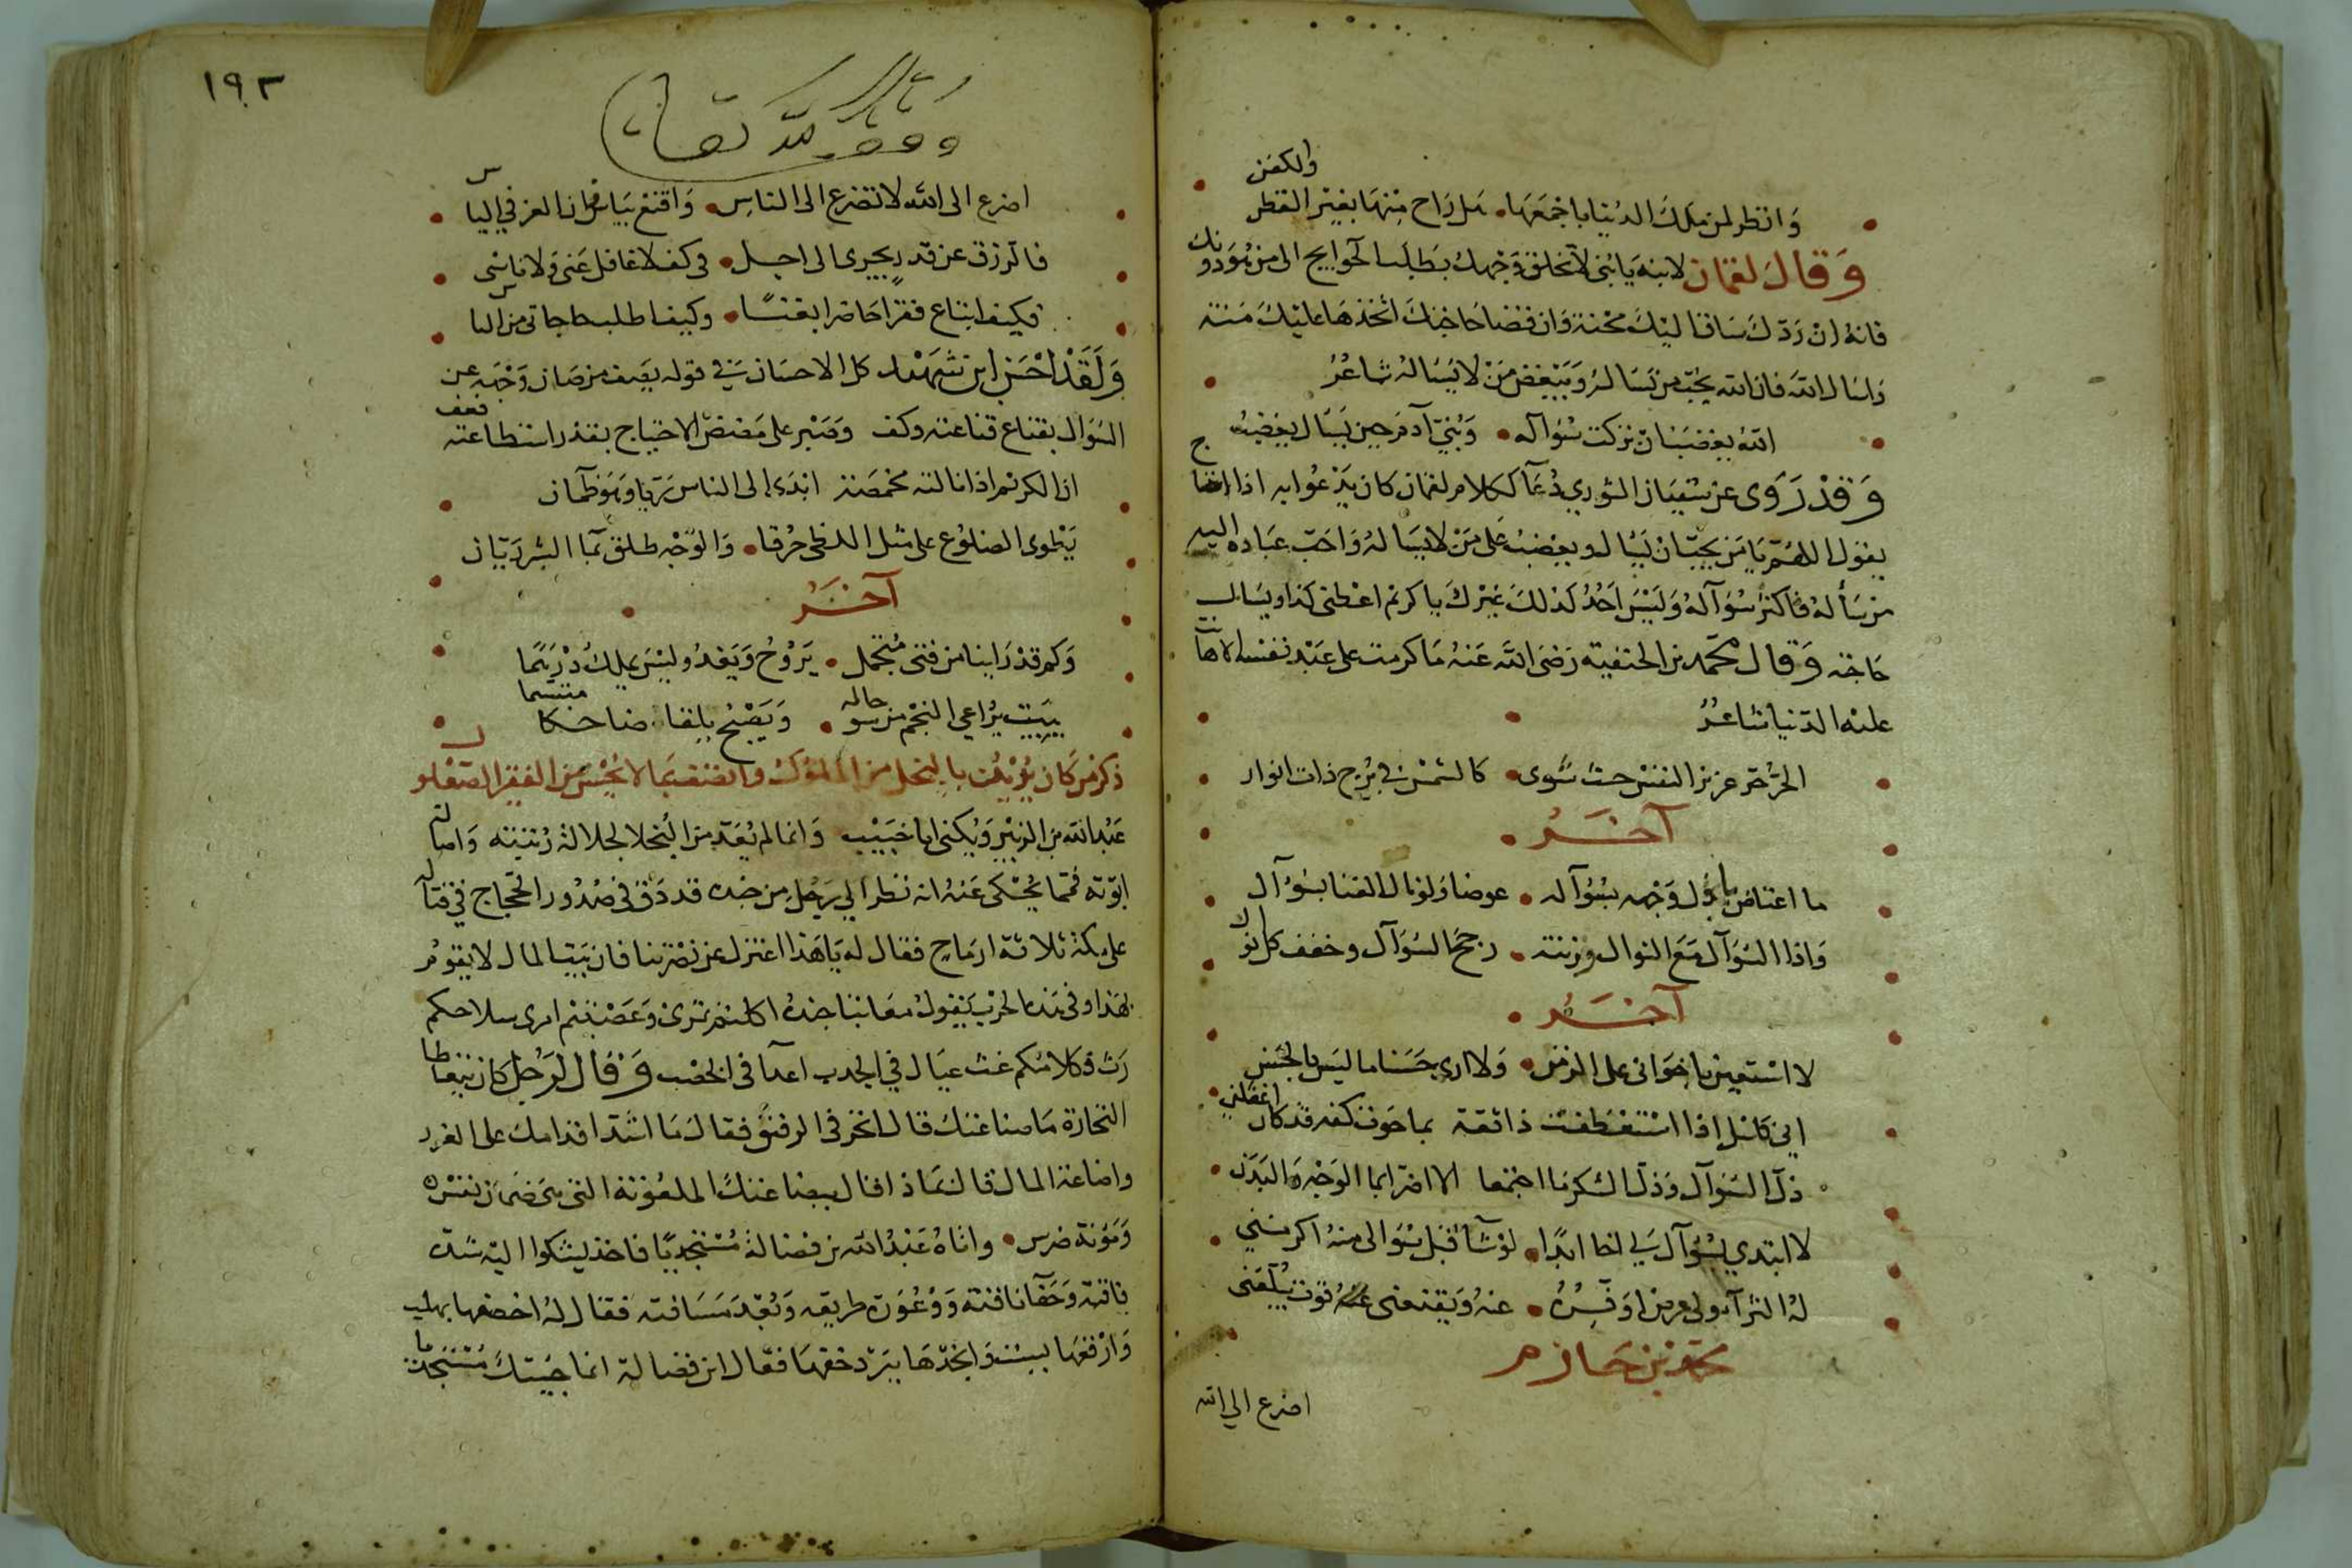 وانظر لمن ملك الدنيا باجمعها هل راح منها بغير القطن والكفن
وقال لقمان لابنه يابنى لا تخلق وجهك بطلب الحوايج الى من هو دونك
فانه ان ردك ساق اليك محنة وان قضا حاجتك اتخذها عليك منة
واسال الله فان الله يحب من يساله ويبغض من لا يساله شاعر
الله يغضب ان تركت سوآله وبنيّ آدم حين يسال يغضب
وقد روى عن سفيان الثوري دعآ ككلام لقمان كان يدعوا به اذا احتاج
يقول اللهم يا من يحب ان يسال ويغضب على من لا يساله واحب عباده اليه
من سأله فاكثر سوآله وليس احد كذلك غيرك يا كريم اعطنى كذا ويسال
حاجته وقال محمد بن الحنفية رضى الله عنه ما كرمت على عبد نفسه الا هانت
عليه الدنيا شاعر
الحر حر عزيز النفس حيث ثوى كالشمس في برج ذات انوار
آخر
ما اعتاض باذل وجهه بسوآله عوضا ولو نال الغنا بسوآل
واذا السوآل مع النوال وزنته رجح السوآل وخفف كل نوال
آخر
لا استعين باخوانى على الزمن ولا ارى حسنا ما ليس بالحسن
انى كانى اذا استعطفت ذا ثقة بما حوت كفه قد كان اغفلنى
ذل السوآل وذل الشكر ما اجتمعا الا اضرا بما الوجه والبدن
لا ابتدي بسوآل لي اخا ابدا لو شآ قبل سوالى منه اكرمنى
له الثرآ ولى عرض اوفره عنه ويقنعنى قوت يبلغنى
محمد بن حازم
اضرع الي الله
١٩٣
وقف لله تعالى
اضرع الى الله لا تضرع الى الناس واقنع بياس فان العز في الياس
فالرزق عن قدر يجرى الى اجل في كف لا غافل عنى ولا ناسى
فكيف ابتاع فقرا حاضرا بغنا وكيف اطلب حاجاتى من الناس
ولقد احسن ابن شهيد كل الاحسان في قوله يصف من صان وجهه عن
السوال بقناع قناعته وكف وصبر على مضض الاحتياج بقدر استطاعته فعف
ان الكريم اذا نالته مخمصة ابدى الى الناس ريا وهو ظمآن
يطوى الضلوع على مثل اللظى حرقا والوجه طلق بما البشر ريان
آخر
وكم قد راينا من فتى متجمل يروح ويغدو ليس يملك درهما
يبيت يراعي النجم من سو حاله ويصبح يلقا ضاحكا متبسما
ذكر من كان يدين بالبخل من الملوك واتصف بما لا يحسن من الفقير الصعلوك
عبد الله بن الزبير ويكنى ابا خبيب وانما لم يعد من البخلا لجلالة رتبته واصالة
ابوته فمما يحكى عنه انه نظر الي رجل من جنده قد دق في صدور الحجاج في قتاله
على مكة ثلاثة ارماح فقال له يا هذا اعتزل عن نصرتنا فان بيت المال لا يقوم
بهذا وفي هذه الحرب يقول معاتبا جنده اكلتم تمرى وعصيتم امرى سلاحكم
رث وكلامكم غث عيال في الجدب اعدا في الخصب وقال لرجل كان يتعاطا
التجارة ما صناعتك قال اتجر في الرقيق فقال ما اشد اقدامك على الغرر
واضاعة المال قال بماذا قال ببضاعتك الملعونة التى هى ضمان نفس
ومونة ضرس واتاه عبد الله بن فضالة مستجديا فاخذ يشكوا اليه شدة
فاقته وحفا ناقته ووعورة طريقه وبعد مسافته فقال له اخصفها بهلب
وارقعها بسبت وانجد بها يبرد خفها فقال ابن فضالة انما جيتك مستجديا